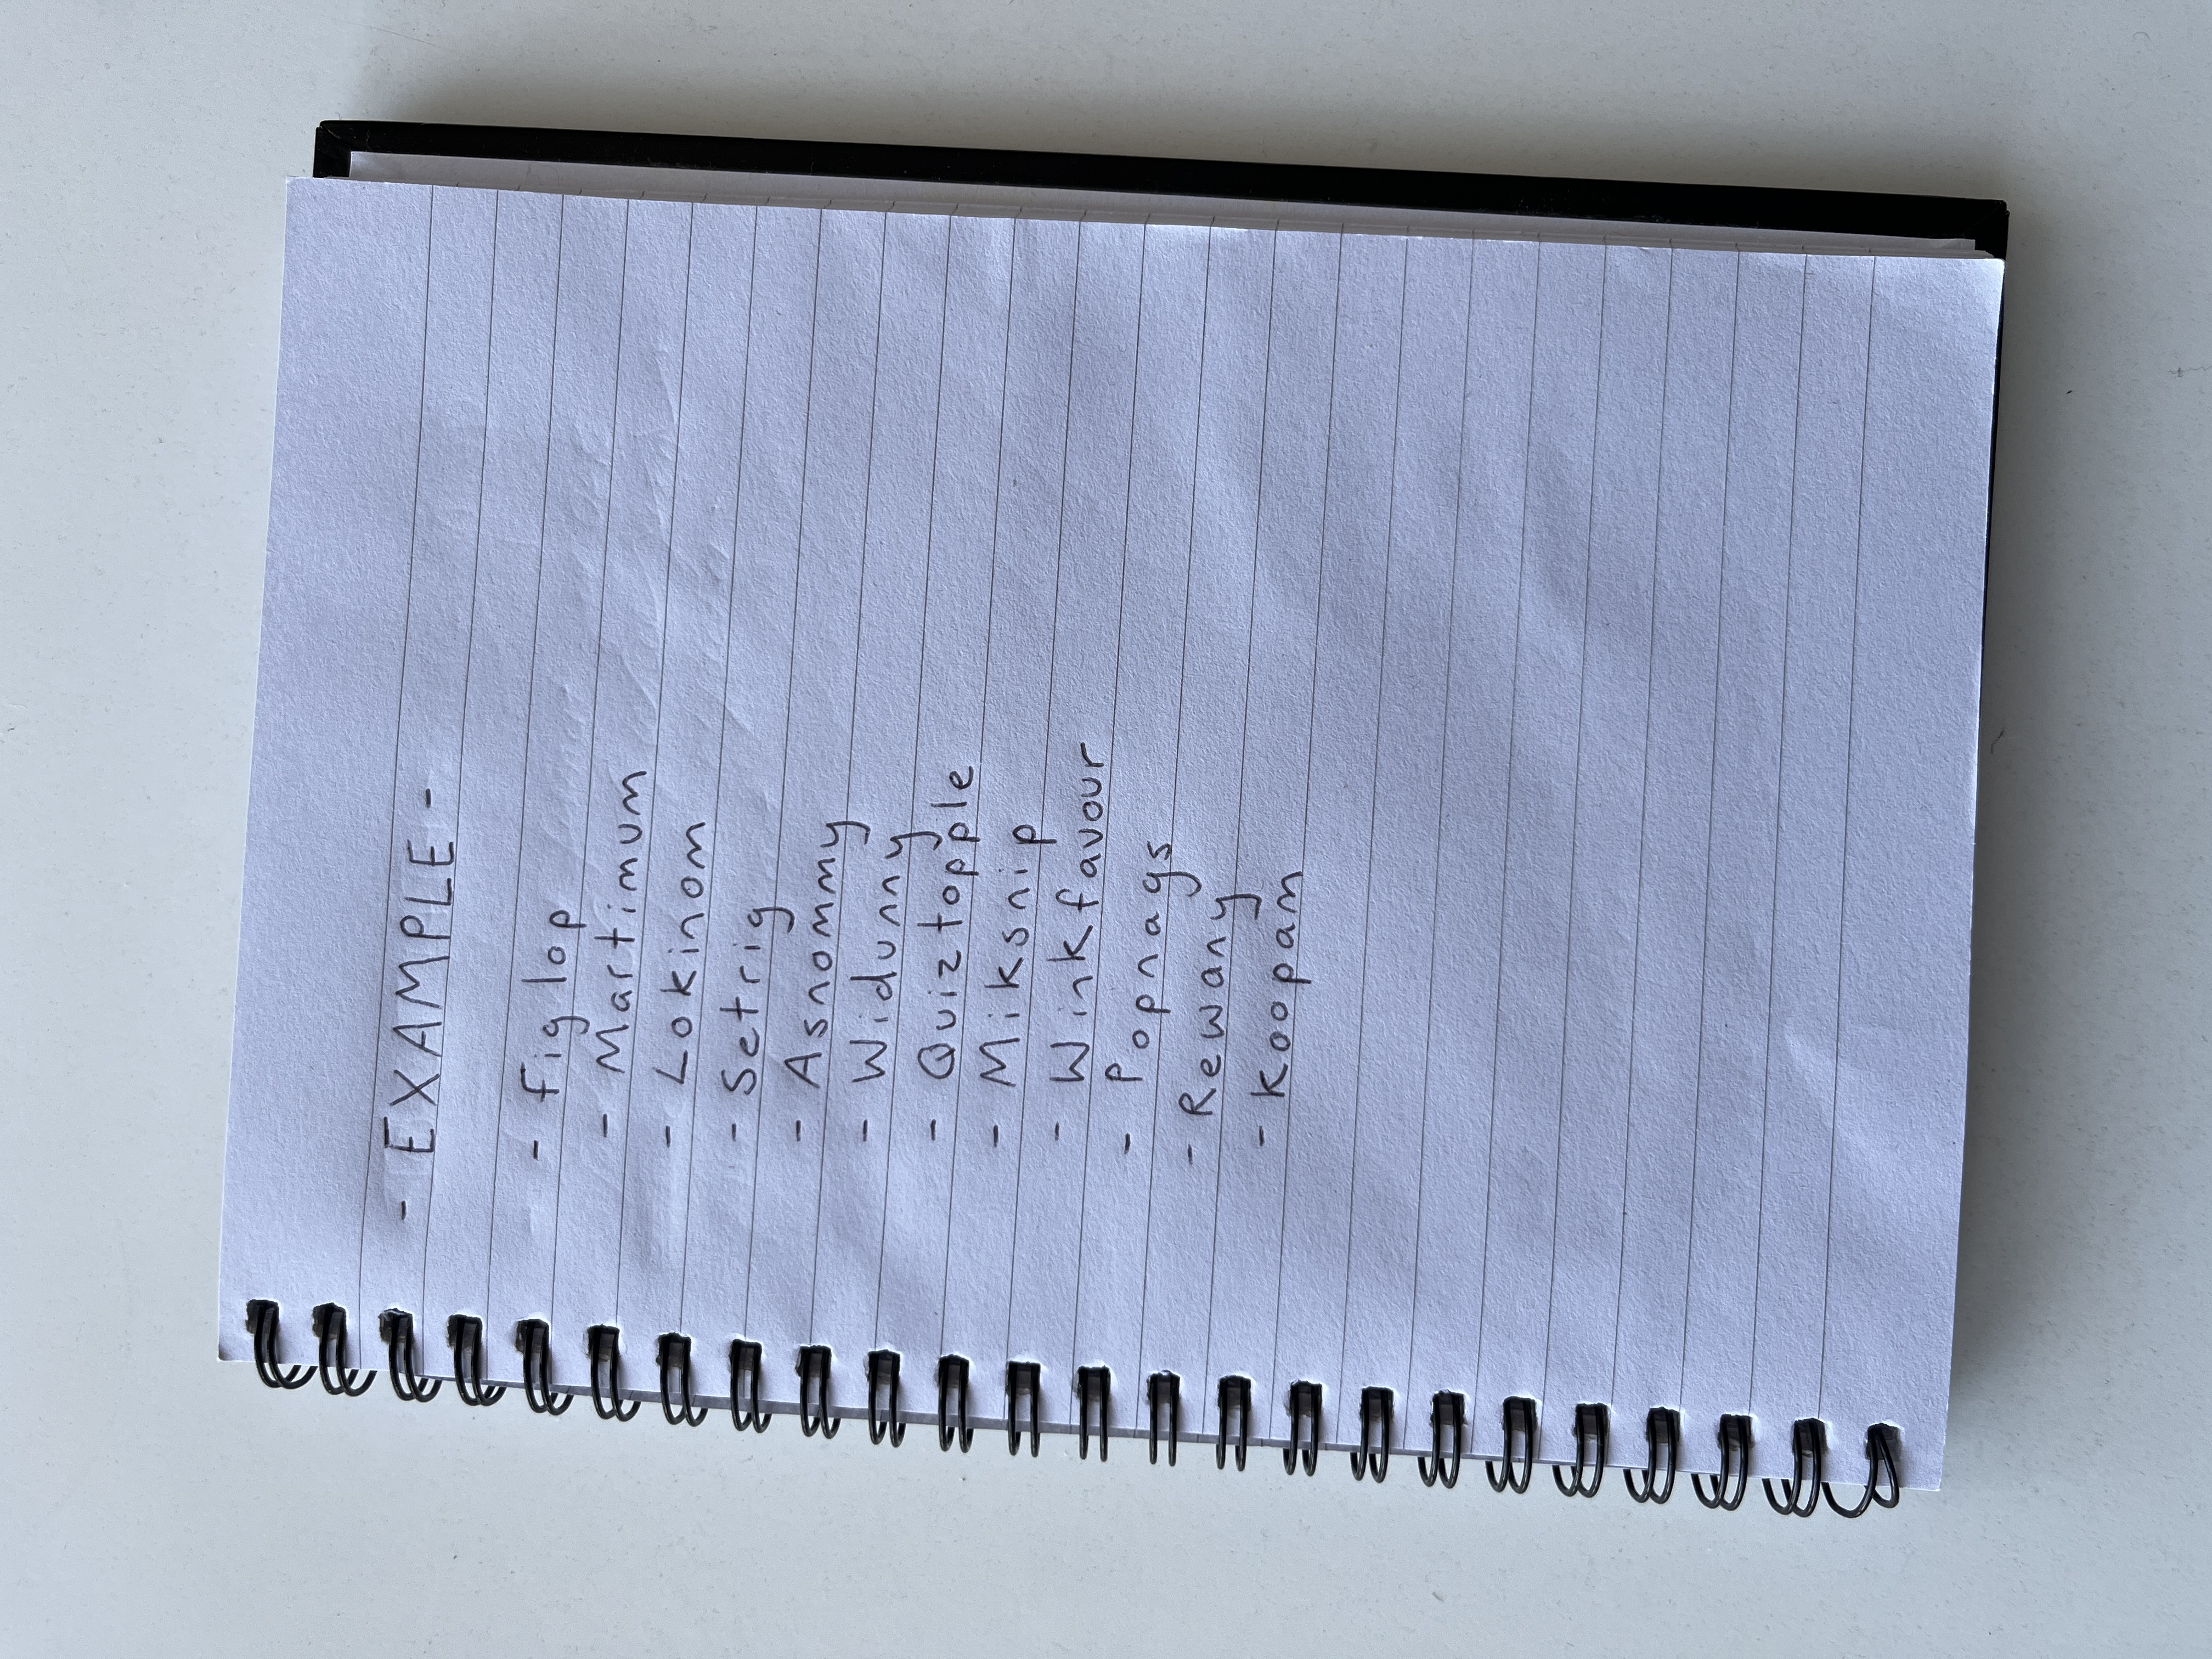 - EXAMPLE -
- Figlop
- Martimum
- Lokinom
- Setrig
- Asnommy
- Widunny
- Quiztopple
- Miksnip
- Winkfavour
- Popnags
- Rewany
- Koopam